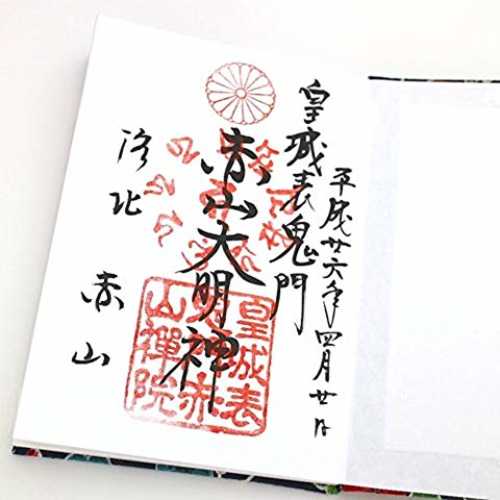 平成廿六年四月廿日
皇城表鬼門
赤山大明神
洛北 赤山
皇城表
赤
山禪院